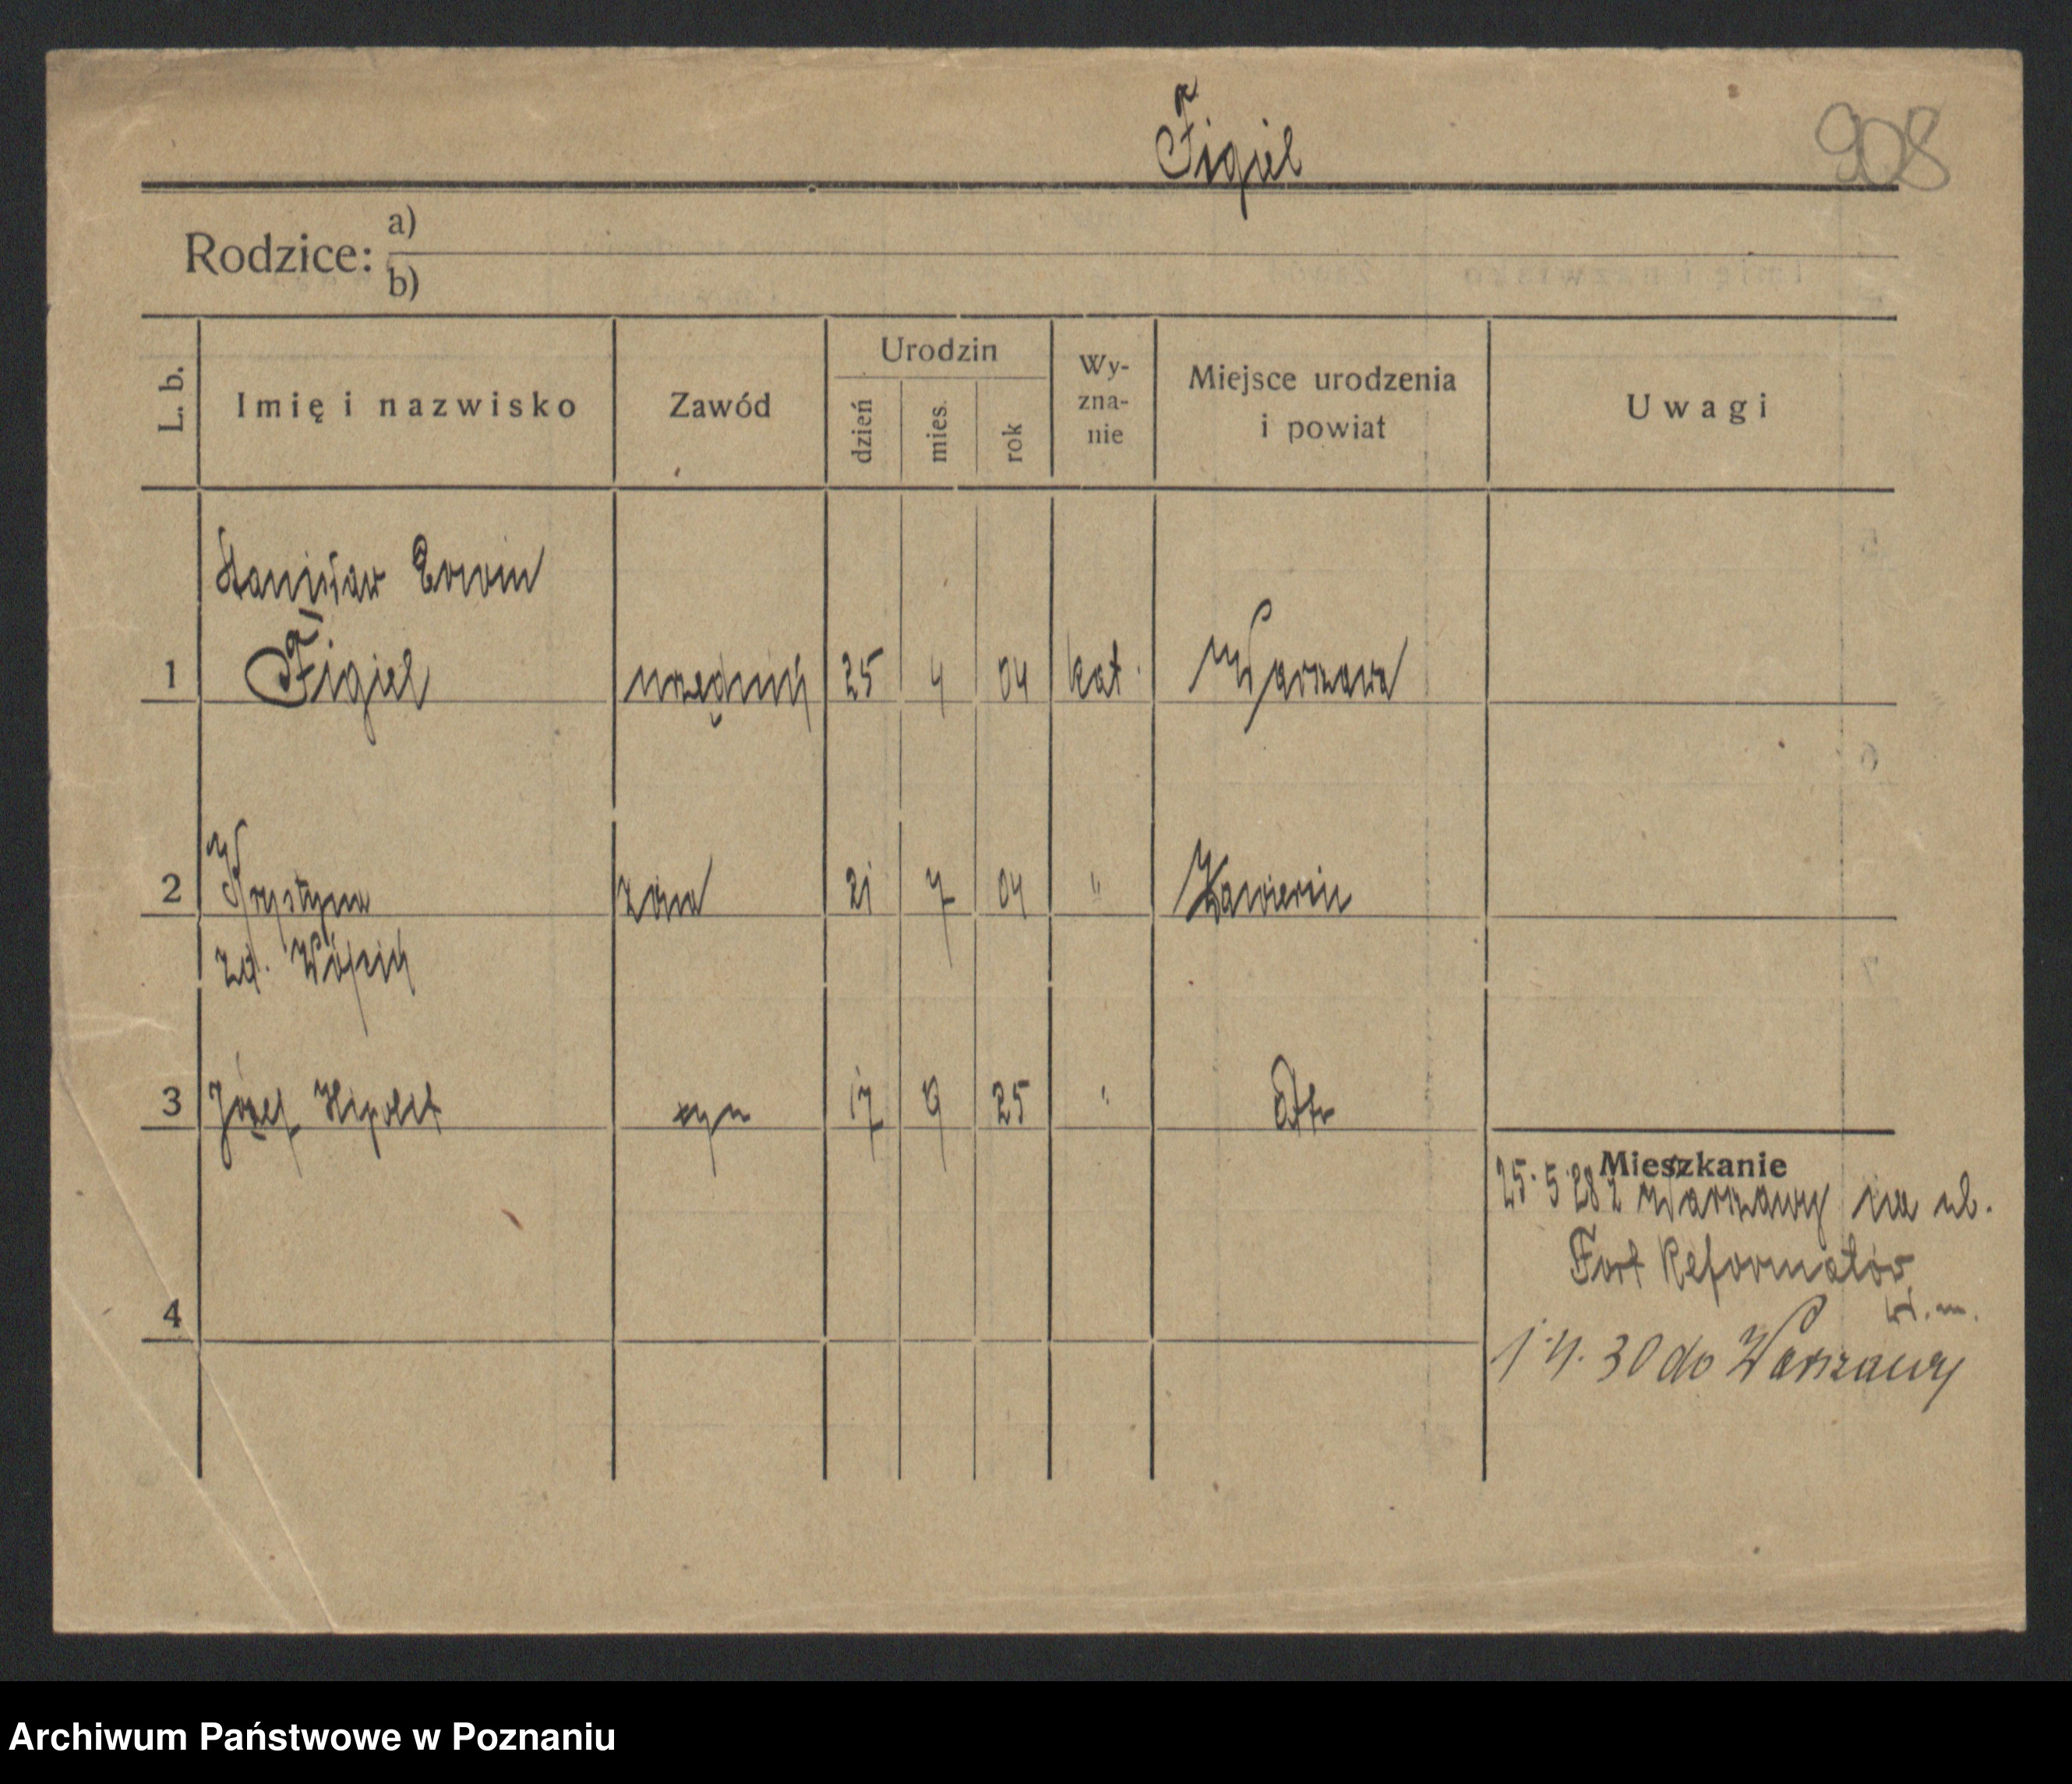 Figiel
908
Rodzice: a)
b)
L. b. Imię i nazwisko Zawód Urodzin dzień mies. rok Wy-zna-nie Miejsce urodzenia i powiat Uwagi
Stanisław Erwin
1 Figiel urzędnik 25 4 04 kat. Warszawa
2 Krystyna żona 21 7 04 "
zd. Wójcik
3 Józef Hipolit syn 17 9 25 "
Mieszkanie
25.5.28 z Warszawy na ul.
Fort Reformatów
4
1.4.30 do Warszawy
Archiwum Państwowe w Poznaniu